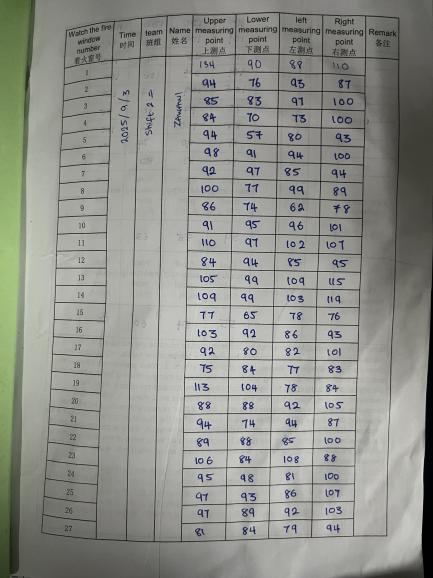 Watch the fire window number 看火窗号 | Time 时间 | team 班组 | Name 姓名 | Upper measuring point 上测点 | Lower measuring point 下测点 | left measuring point 左测点 | Right measuring point 右测点 | Remark 备注
2025/9/3 | Shift 2 =
1 | 134 | 90 | 88 | 110
2 | 94 | 76 | 93 | 87
3 | 85 | 83 | 97 | 100
4 | 84 | 70 | 73 | 100
5 | 94 | 57 | 80 | 93
6 | 98 | 91 | 94 | 100
7 | 92 | 97 | 85 | 94
8 | 100 | 77 | 99 | 89
9 | 86 | 74 | 62 | 78
10 | 91 | 95 | 96 | 101
11 | 110 | 97 | 102 | 107
12 | 84 | 94 | 85 | 95
13 | 105 | 99 | 109 | 115
14 | 109 | 99 | 103 | 119
15 | 77 | 65 | 78 | 76
16 | 103 | 92 | 86 | 93
17 | 92 | 80 | 82 | 101
18 | 75 | 84 | 77 | 83
19 | 113 | 104 | 78 | 84
20 | 88 | 88 | 92 | 105
21 | 94 | 74 | 94 | 87
22 | 89 | 88 | 85 | 100
23 | 106 | 84 | 108 | 88
24 | 95 | 98 | 81 | 100
25 | 97 | 93 | 86 | 107
26 | 97 | 89 | 92 | 103
27 | 81 | 84 | 79 | 94